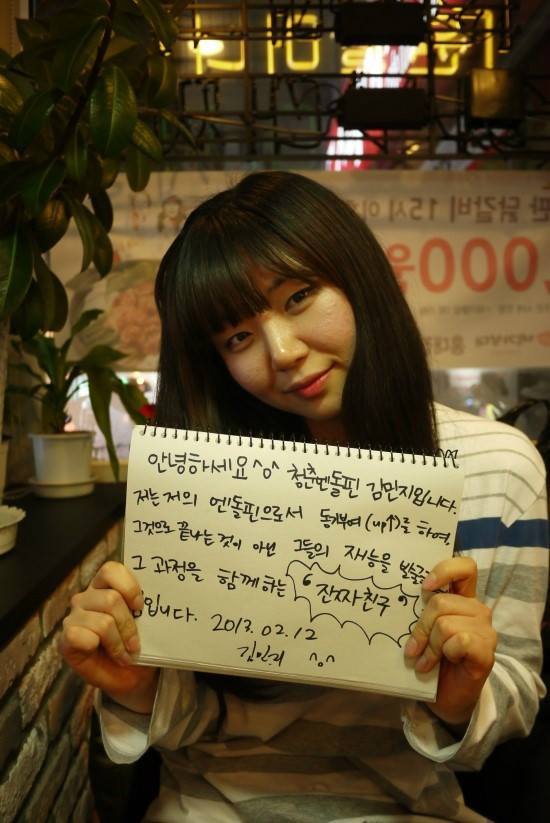 안녕하세요^o^ 청춘엔돌핀 김민지입니다.
저는 저의 엔돌핀으로서 동기부여(up↑)를 하여,
그것으로 끝나는 것이 아닌 그들의 재능을
그 과정을 함께하는 "잔짜친구"
입니다. 2013.02.12
김민지 ^o^
판 닭갈비 15시 이
,000원